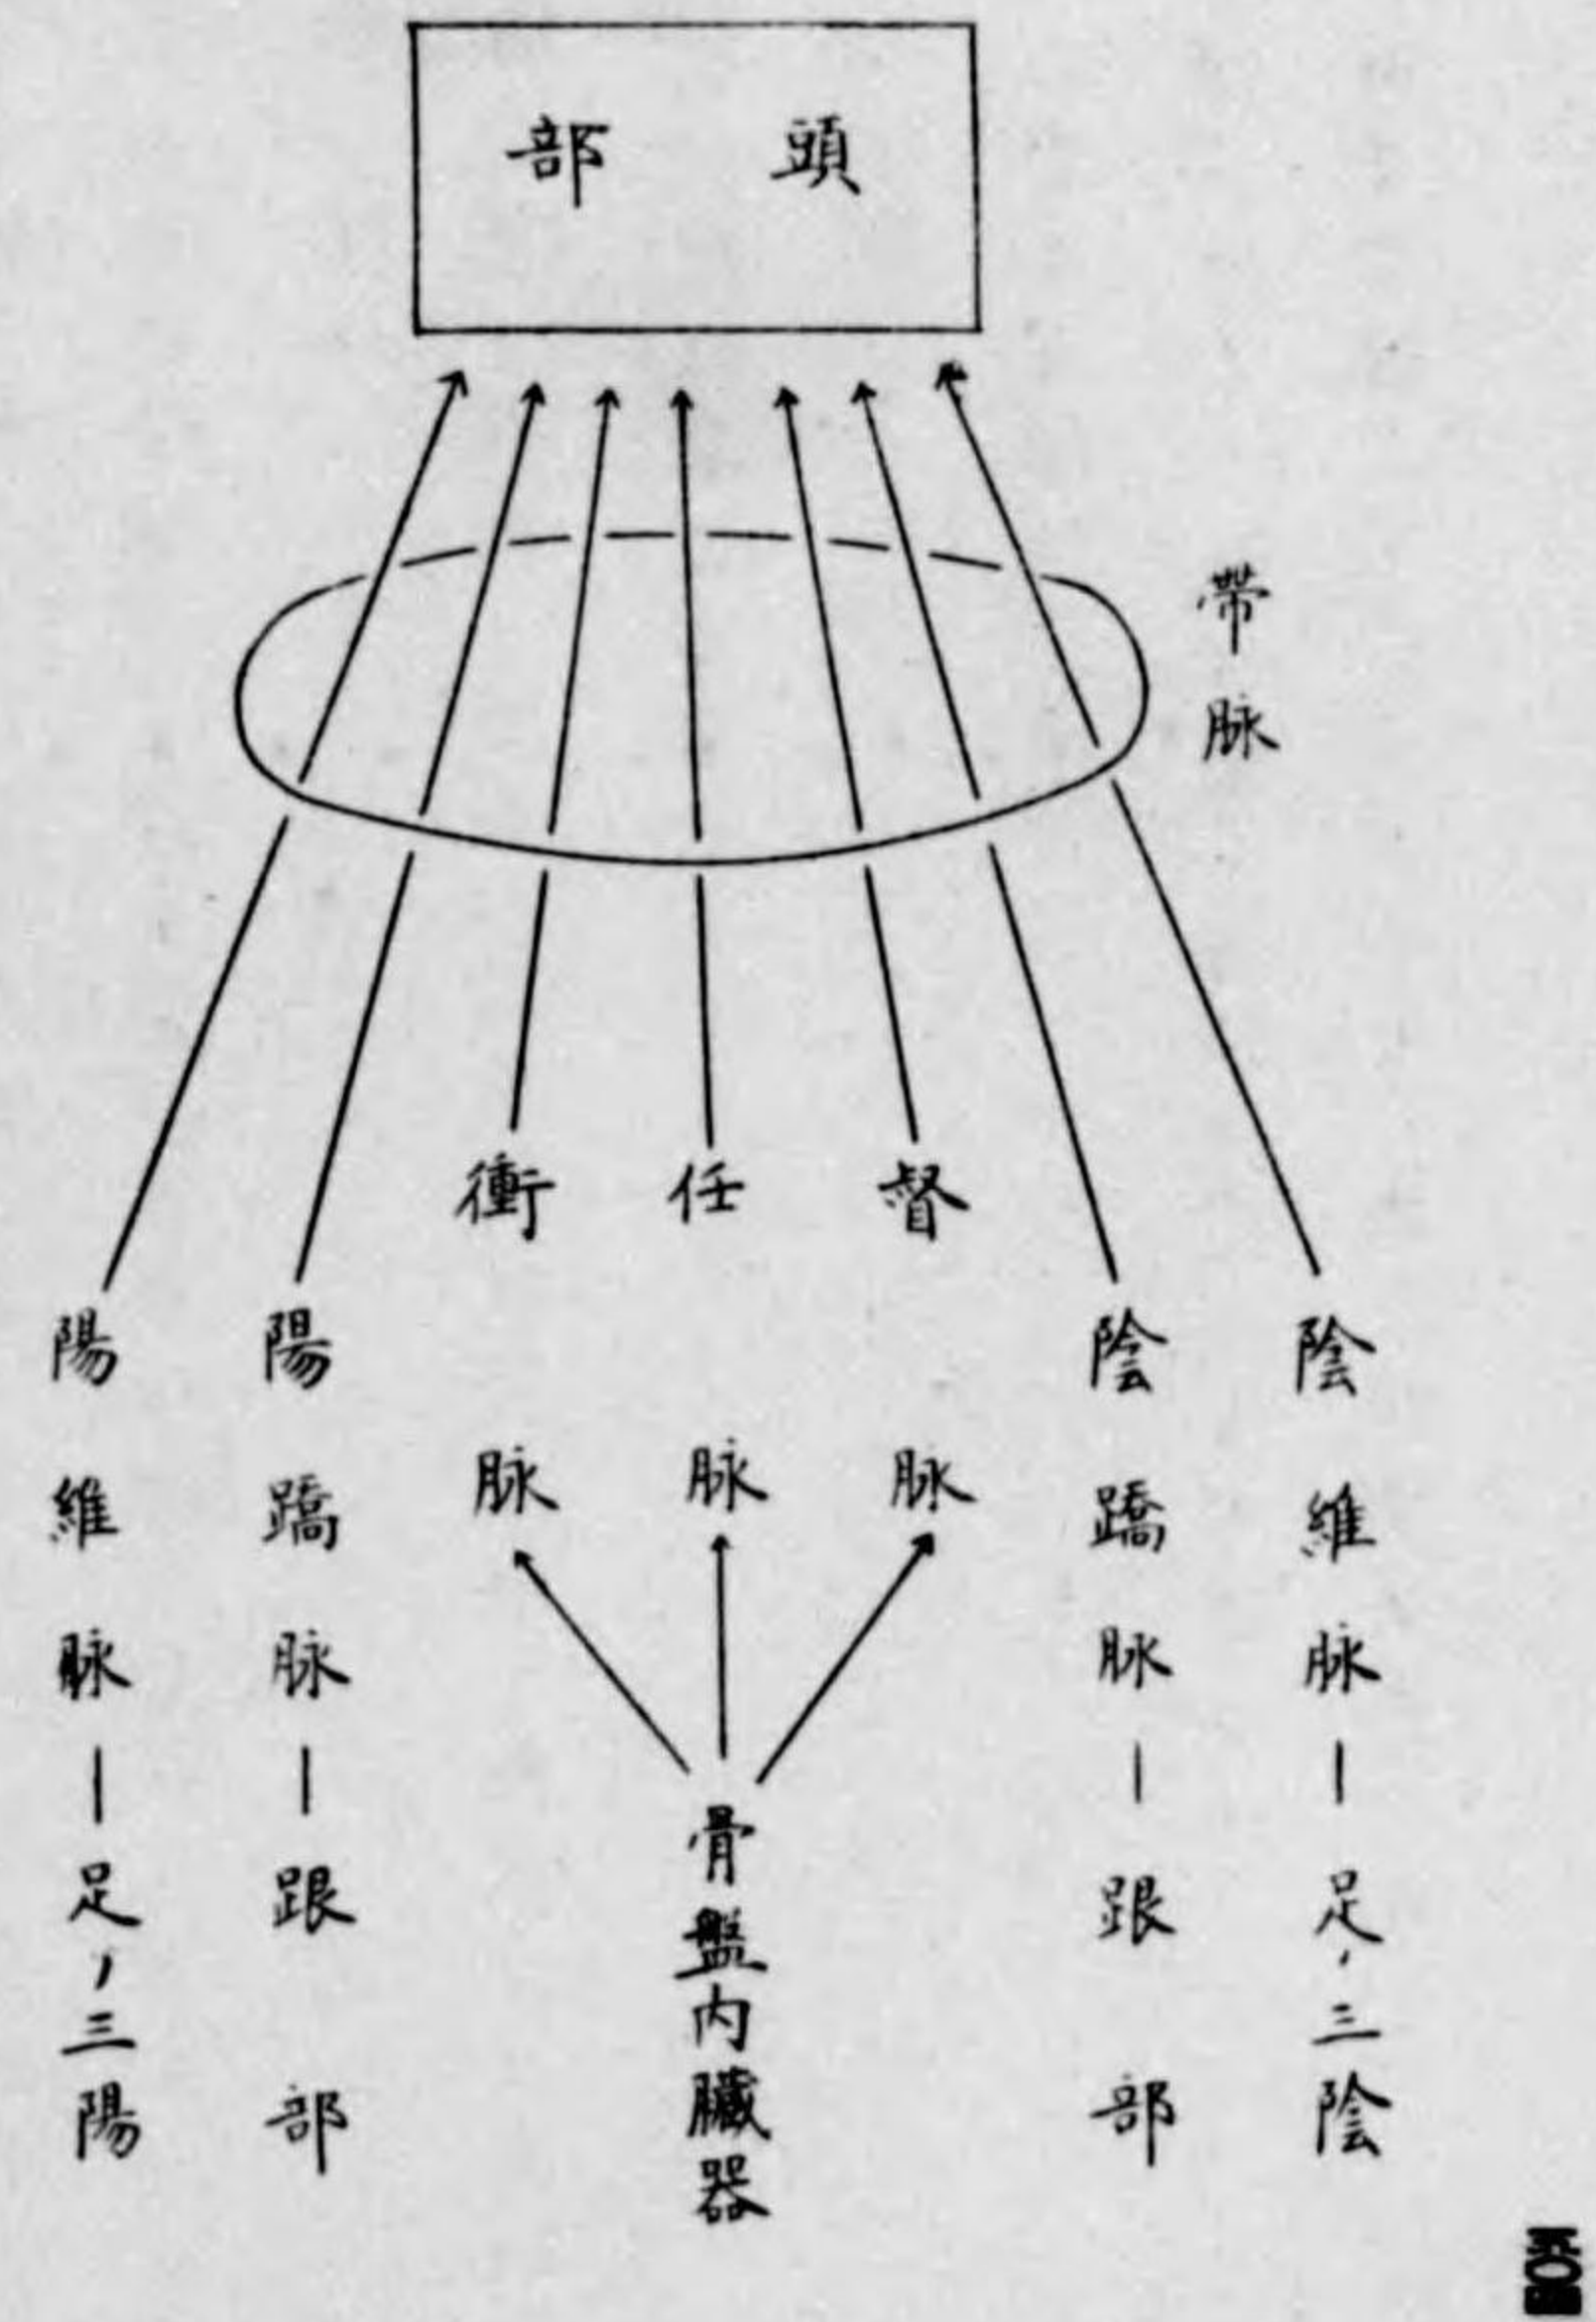 頭部
帶脉
陰維脉—足ノ三陰
陰蹻脉—跟部
督脉
任脉
衝脉
骨盤内臓器
陽蹻脉—跟部
陽維脉—足ノ三陽